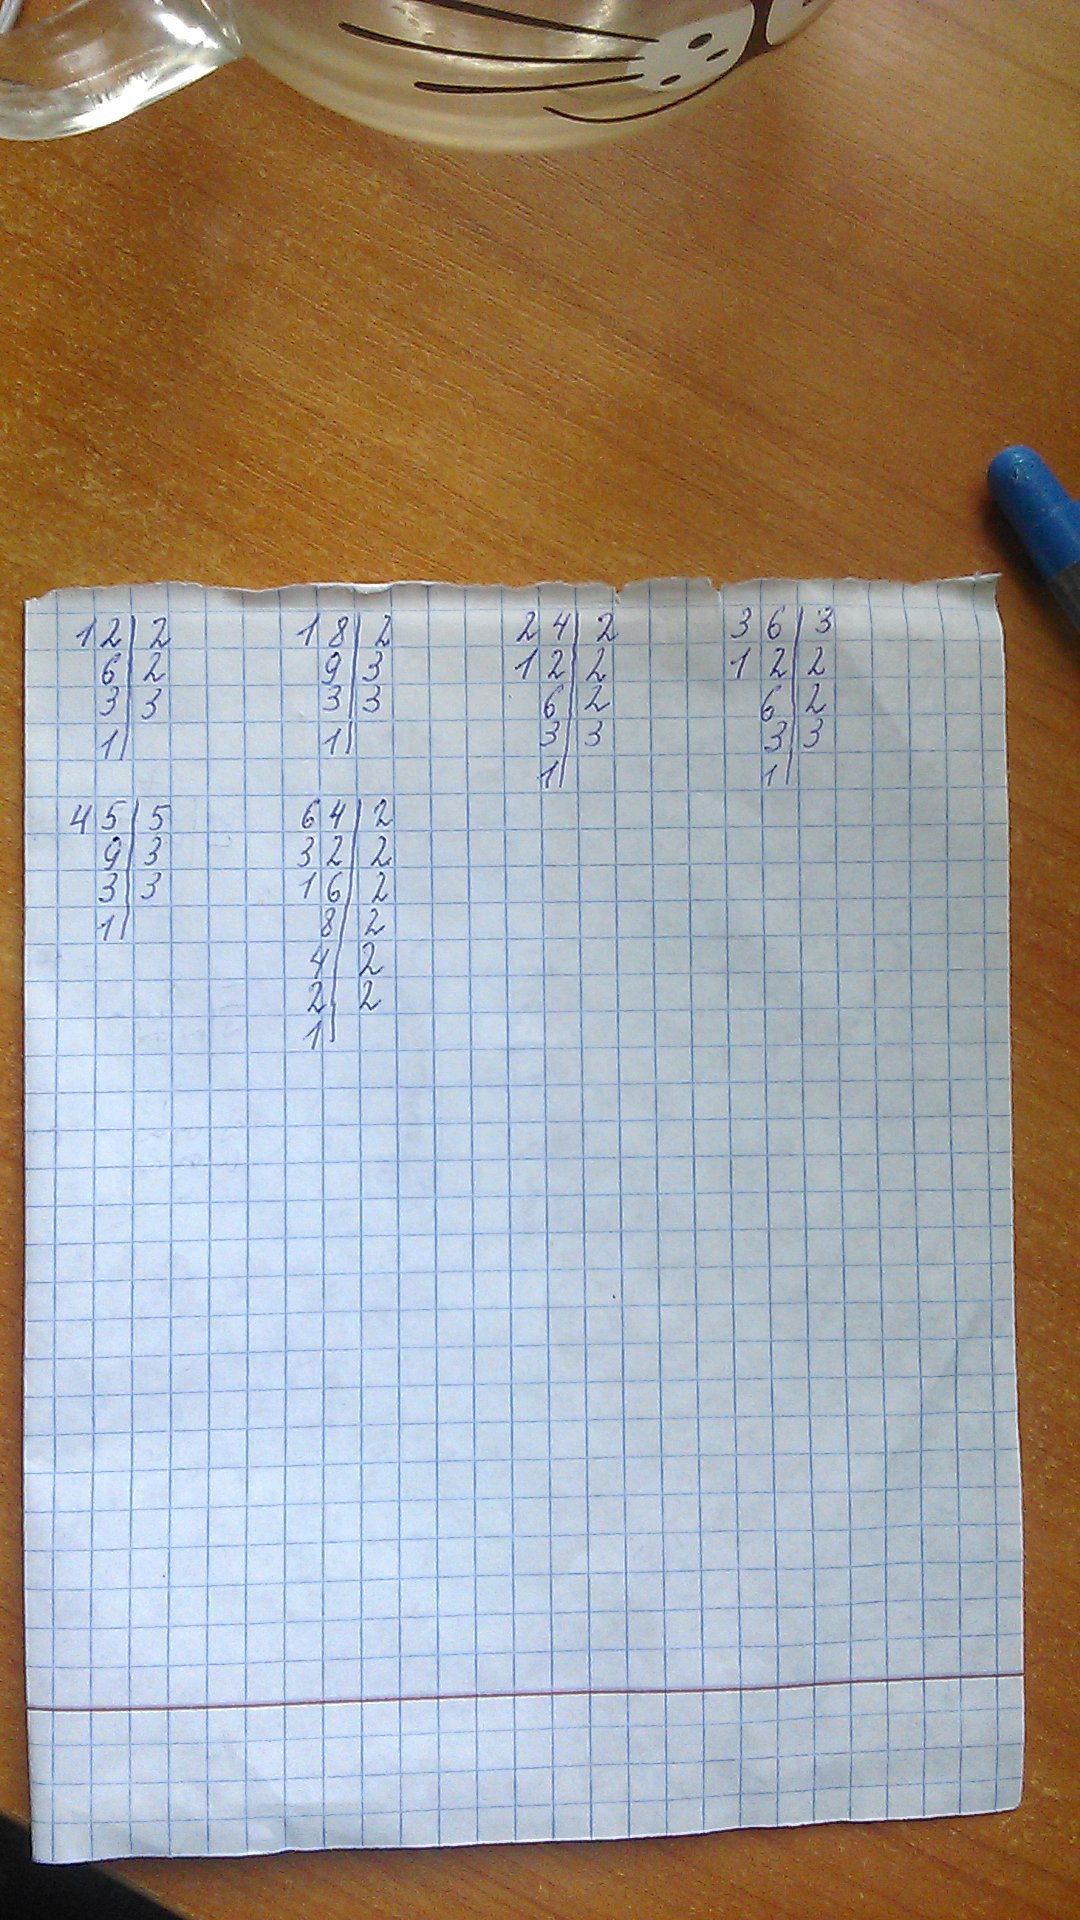 12|2
6|2
3|3
1|
18|2
9|3
3|3
1|
24|2
12|2
6|2
3|3
1|
36|3
12|2
6|2
3|3
1|
45|5
9|3
3|3
1|
64|2
32|2
16|2
8|2
4|2
2|2
1|